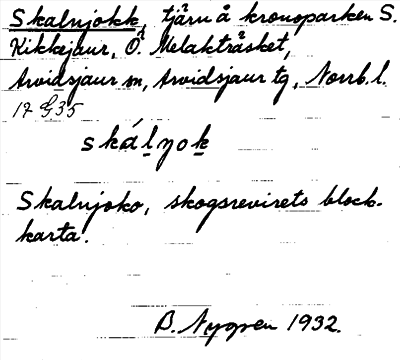 Skalnjokk, tjärn å kronoparken S.
Kikkejaur, Ö. Melakträsket,
Arvidsjaur sn, Arvidsjaur tg, Norrb. l.
17 G35
skálŋok
Skalnjoko, skogsrevirets block-
karta.
B. Nygren 1932.